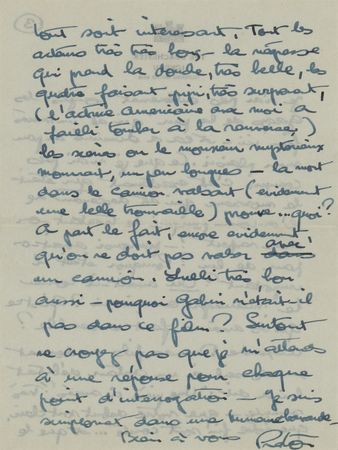 tout soit intéressant. Tout les
acteurs très très bons – la négresse
qui prend la douche, très belle, les
quatre faisant pipi, très surprenant,
(l'actrice américaine avec moi a
failli tomber à la renverse,)
les scènes ou le monsieur mystérieux
mourrait, un peu longues – la mort
dans le camion valsant (évidement
une belle trouvaille) prouve... quoi?
A part le fait, encore evidement
qu'on ne doit pas valser avec
un camion. Lulli très bon
aussi – pourquoi Gabin n'était-il
pas dans ce film? Surtout
ne croyez pas que je m'attends
à une réponse pour chaque
point d'interrogation – je suis
simplement dans une
Bien à vous